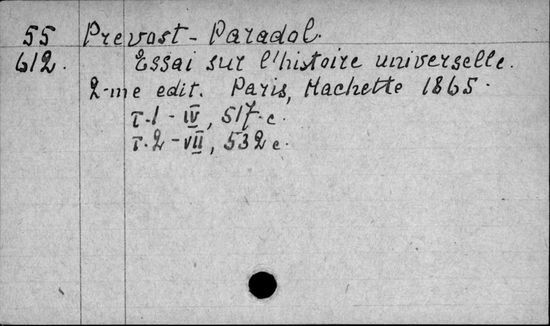 55 Prevost-Paradol.
612. Essai sur l'histoire universelle.
2-me edit. Paris, Hachette 1865.
T.1 - IV, 517 c.
T.2 - VII, 532 c.